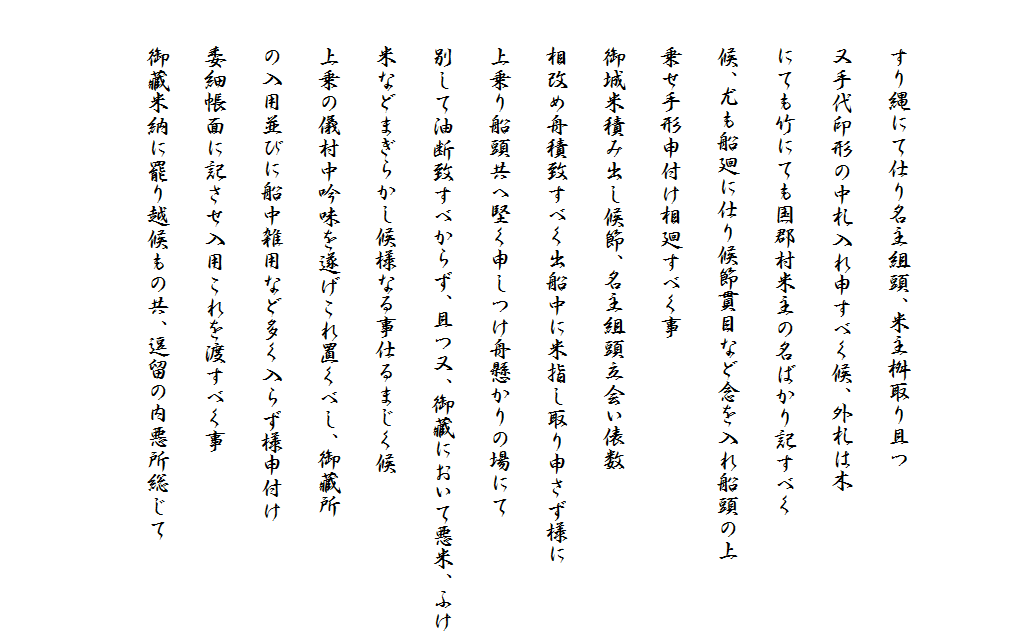 すり縄にて仕り名主組頭、米主桝取り且つ
又手代印形の中札入れ申すべく候、外札は木
にても竹にても国郡村米主の名ばかり記すべく
候、尤も船廻に仕り候節貫目など念を入れ船頭の上
乗せ手形申付け相廻すべく事
御城米積み出し候節、名主組頭立会い俵数
相改め舟積致すべく出船中に米指し取り申さず様に
上乗り船頭共へ堅く申しつけ舟懸かりの場にて
別して油断致すべからず、且つ又、御蔵において悪米、ふけ
米などまぎらかし候様なる事仕るまじく候
上乗の儀村中吟味を遂げこれ置くべし、御蔵所
の入用並びに船中雑用など多く入らず様申付け
委細帳面に記させ入用これを渡すべく事
御蔵米納に罷り越候もの共、逗留の内悪所総じて